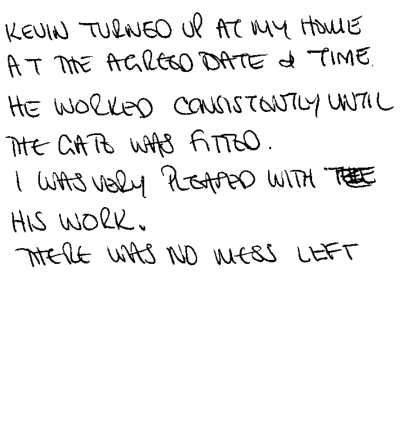 KEVIN TURNED UP AT MY HOME
AT THE AGREED DATE & TIME.
HE WORKED CONSISTENTLY UNTIL
THE GATE WAS FITTED.
I WAS VERY PLEASED WITH
HIS WORK.
THERE WAS NO MESS LEFT